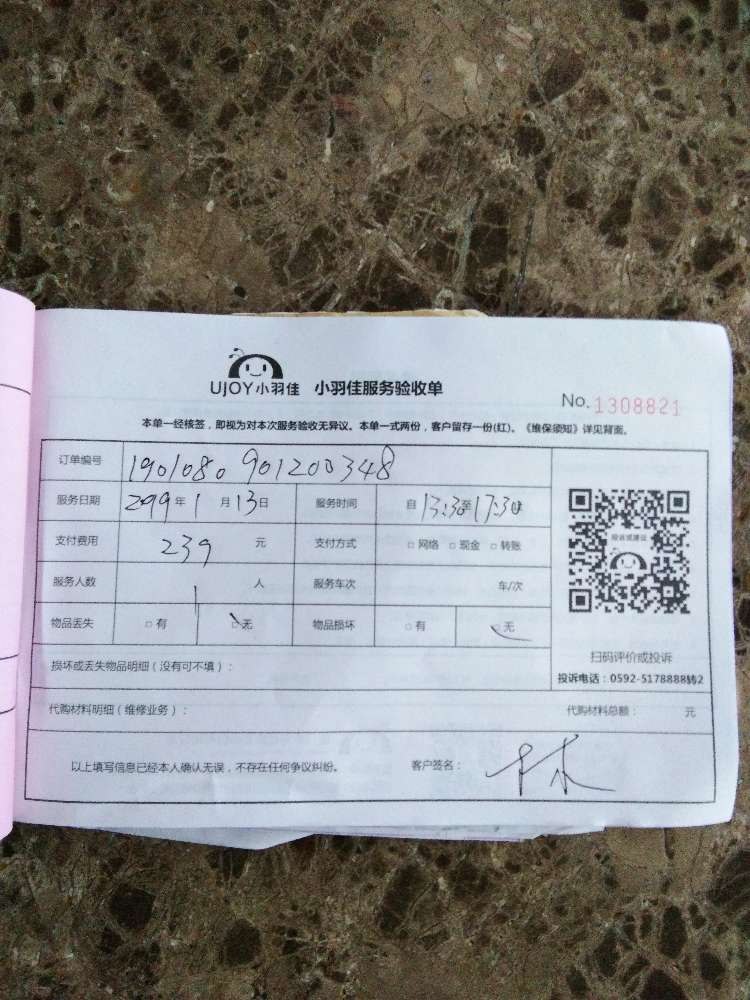 UJOY小羽佳 小羽佳服务验收单
No. 1308821
本单一经核签，即视为对本次服务验收无异议。本单一式两份，客户留存一份(红)。《维保须知》详见背面。
订单编号 1901080901200348
服务日期 2019年1月13日 服务时间 自13:30至17:30
支付费用 239 元 支付方式 □网络 □现金 □转账
服务人数 1 人 服务车次 车/次
物品丢失 □有 □无 物品损坏 □有 □无
投诉或建议
扫码评价或投诉
投诉电话：0592-5178888转2
损坏或丢失物品明细（没有可不填）：
代购材料明细（维修业务）： 代购材料总额： 元
以上填写信息已经本人确认无误，不存在任何争议纠纷。 客户签名：林